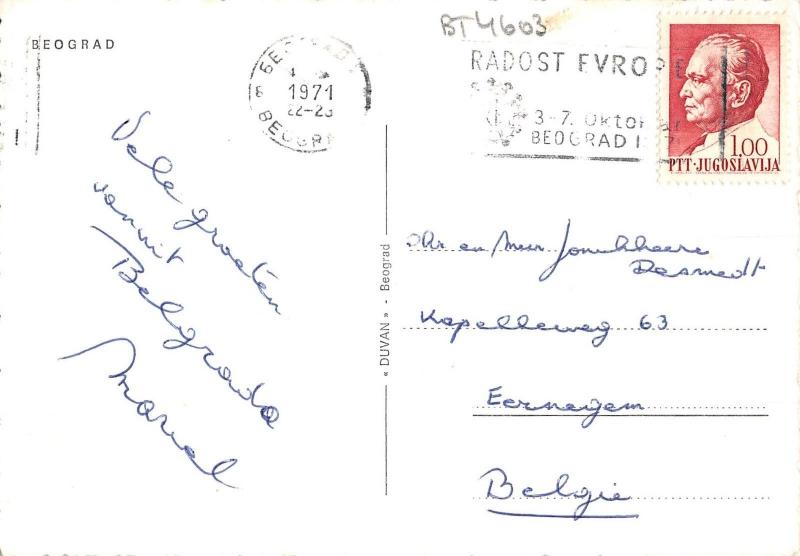 BEOGRAD
BT4603
БЕОГРАД
1971
22-23
BEOGRAD
RADOST EVROPE
3-7. Oktobar
BEOGRAD
1.00
PTT·JUGOSLAVIJA
Vele groeten
vanuit
Belgrado
Marcel
« DUVAN » - Beograd
Mr en Mevr Jonckheere
Desmedt
Kapelleweg 63
Eernegem
België